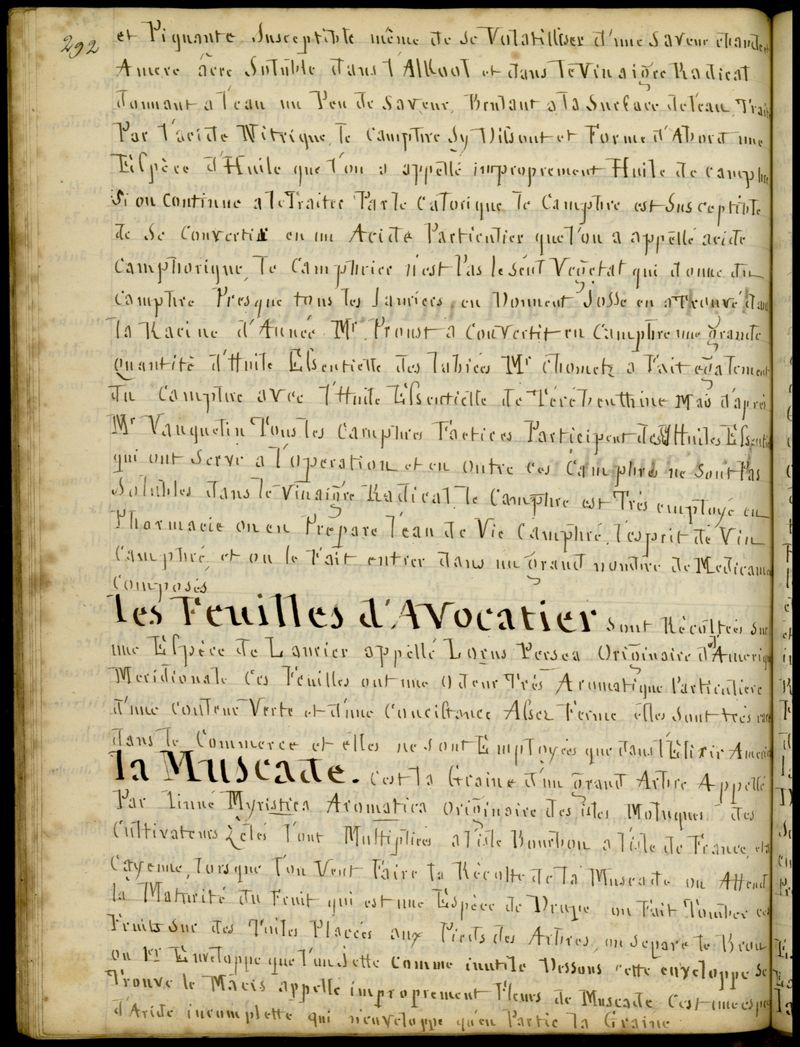 292
et Piquante Susceptible même de se Volatilliser d'une Saveur chaude
Amere âcre Soluble dans l'Alkool et dans le Vinaigre Radical
donnant a l'eau un Peu de Saveur, Brulant a la Surface de l'eau, Trai
Par l'acide Nitrique, le Camphre s'y Dissout et Forme d'Abord une
Espèce d'Huile que l'on a appellé improprement Huile de Camphre
Si on Continue a le Traiter Par le Calorique, le Camphre est Susceptible
de Se Convertir en un Acide Particulier que l'on a appellé acide
Camphorique, le Camphrier n'est Pas le seul Vegetal qui donne du
Camphre Presque tous les Lauriers en Donnent Josse en a Trouvé dans
la Racine d'Aunée Mr Proust a Convertit en Camphre une grande
quantité d'Huile Essentielle des labiées Mr Chometz a Fait egalement
du Camphre avec l'Huile Essentielle de Térébenthine Mais d'après
Mr Vauquelin Tous les Camphres Factices Participent des Huiles Essentie
qui ont Servi a l'operation et en Outre ces Camphres ne Sont Pas
Solubles dans le Vinaigre Radical. le Camphre est Très employé en
Pharmacie on en Prepare l'eau de Vie Camphré, l'esprit de Vin
Camphré, et on le Fait entrer dans un grand nombre de Medicamens
Composés
les Feuilles d'Avocatier Sont Récoltées Sur
une Espèce de Laurier appellé Lorus Persea Originaire d'Amerique
Meridionale Ces Feuilles ont une Odeur Très Aromatique Particuliere
d'une Couleur Verte et d'une Concistance Assez Ferme elles Sont très rares
dans le Commerce et elles ne Sont Employées que dans l'Elixir Americain
la Muscade. C'est la Graine d'un grand Arbre Appellé
Par Linné Myristica Aromatica Originaire des isles Moluques des
Cultivateurs Zèlés l'ont Multipliées a l'isle Bourbon a l'isle de France, et a
Cayenne, lorsque l'on Veut Faire la Récolte de la Muscade on Attend
la Maturité du Fruit qui est une Espèce de Drupe on Fait Tomber ces
Fruits Sur des Toiles Placées aux Pieds des Arbres, on separe le Brou
ou 1re Enveloppe que l'on Jette Comme inutile Dessous cette enveloppe Se
Trouve le Macis appelle improprement Fleurs de Muscade C'est une espèce
d'Arile incomplette qui n'enveloppe qu'en Partie la Graine